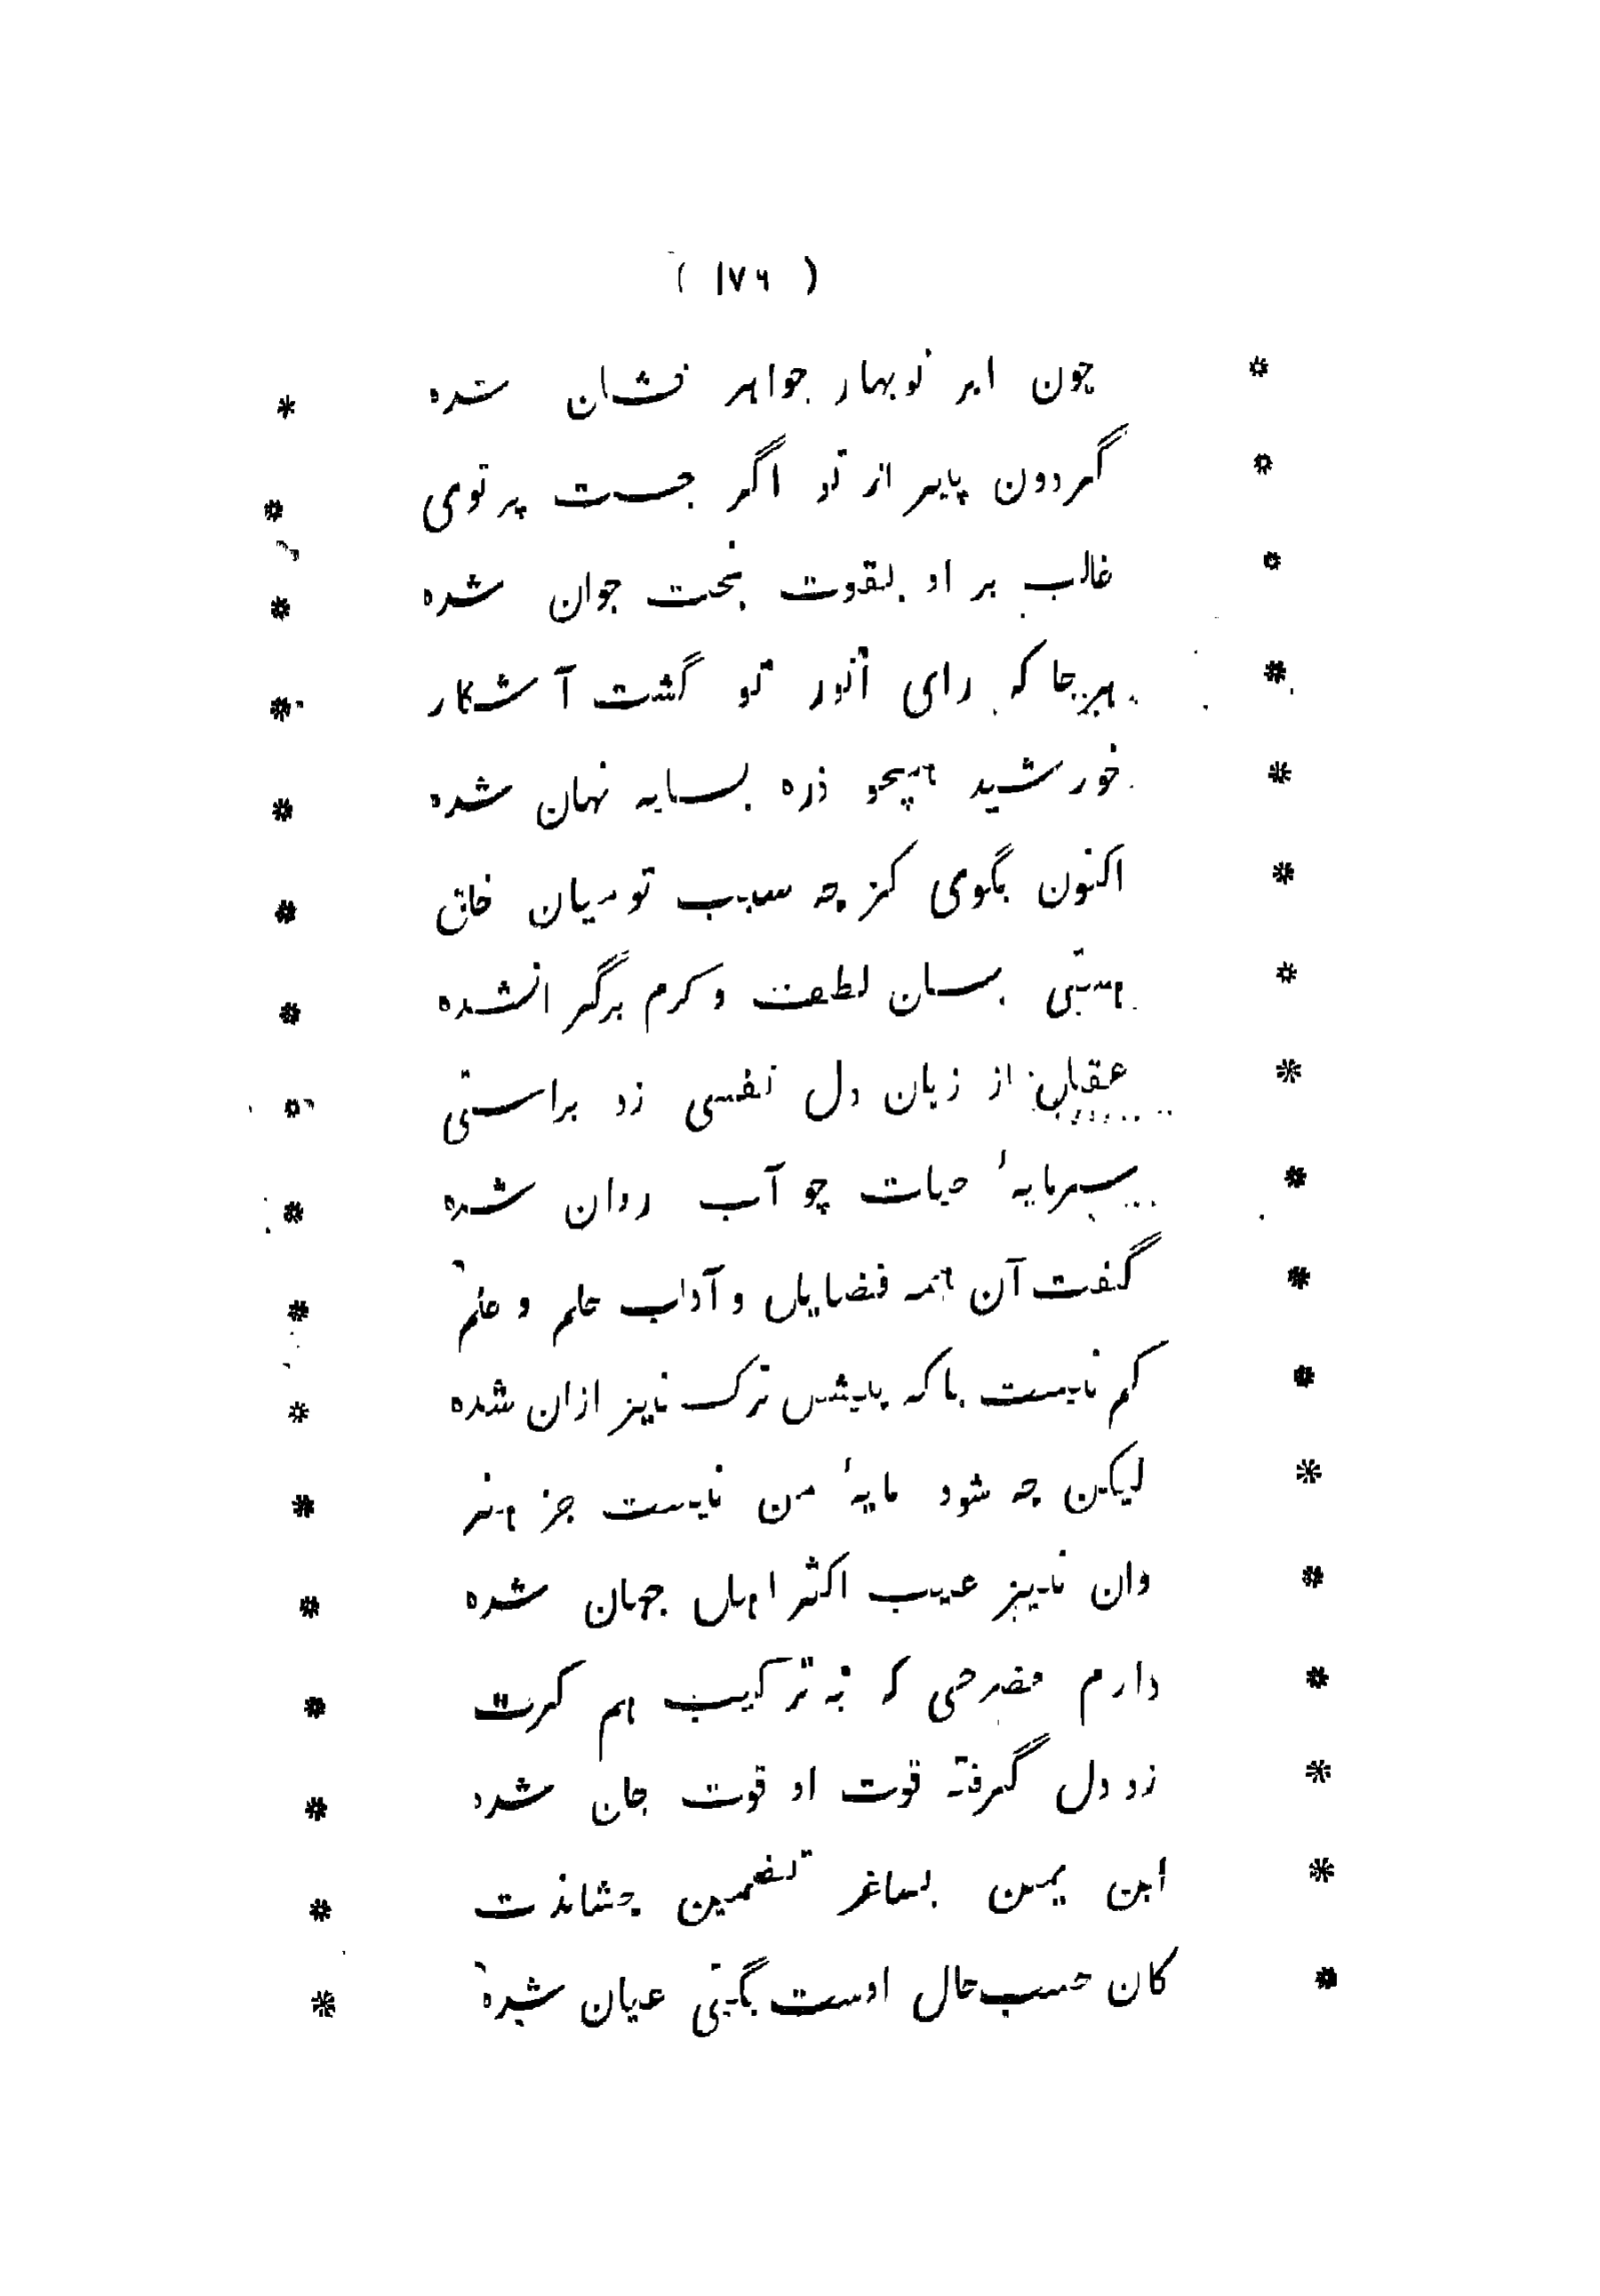 ( ١٧٦ )
* چون ابر نوبهار جواهر فشان شده *
* گردون پیر از تو اگر جست پرتوی *
* غالب بر او بقوت بخت جوان شده *
* هرجا که رای انور تو گشت آشکار *
* خورشید همچو ذره بسایه نهان شده *
* اکنون بگوی کز چه سبب تو میان خلق *
* هستی بسان لطف و کرم برگرانشده *
* عقل از زبان دل نفسی زد براستی *
* سرمایهٔ حیات چو آب روان شده *
* گفت آن همه فضایل و آداب علم و حلم *
* کم نیست با که پیش ترک نیز ازان شده *
* لیکن چه شود مایهٔ من نیست جز هنر *
* وان نیز عیب اکثر اهل جهان شده *
* دارم مفرحی که نه ترکیب هم کرت *
* زو دل گرفته قوت او قوت جان شده *
* ابن یمین بساغر تضمین چشاندت *
* کان حسب حال اوست بگیتی عیان شده *